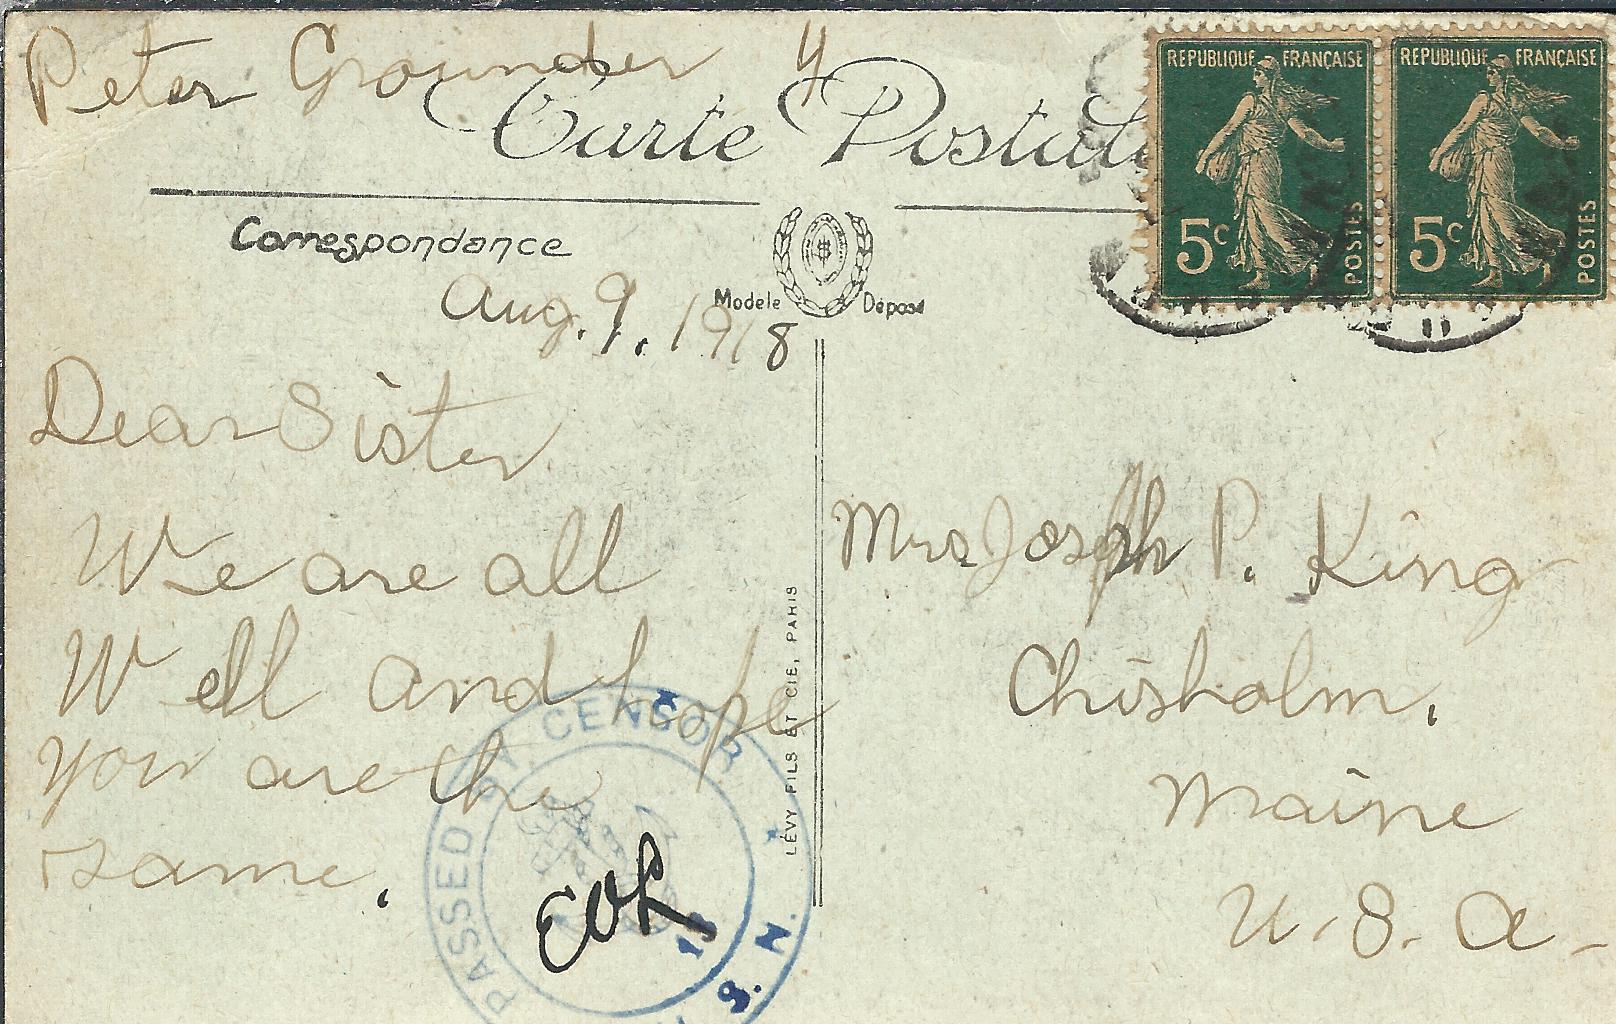 Peter Grounder
Carte Postale
REPUBLIQUE FRANÇAISE
5c
POSTES
REPUBLIQUE FRANÇAISE
5c
POSTES
Correspondance
Modèle Déposé
Aug. 9. 1918
Dear Sister
We are all
Well and hope
you are the
same.
Mrs Joseph P. King
Chisholm.
Maine
U.S.A.
LÉVY FILS ET CIE, PARIS
PASSED BY CENSOR
S. N.